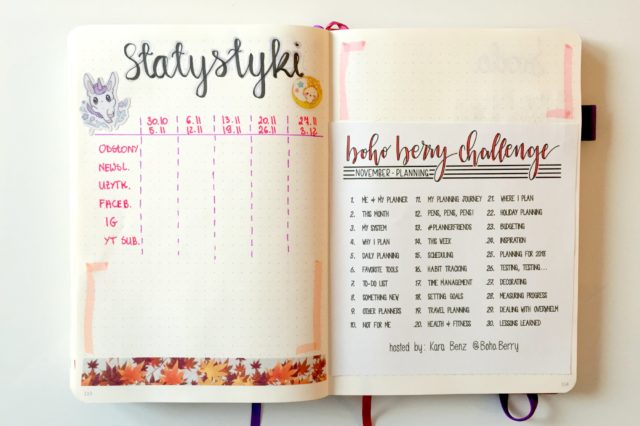 Statystyki
30.10 6.11 13.11 20.11 27.11
5.11 12.11 19.11 26.11 3.12
ODSŁONY
NEWSL.
UŻYTK.
FACEB.
IG
YT SUB.
boho berry challenge
NOVEMBER - PLANNING
1. ME & MY PLANNER
2. THIS MONTH
3. MY SYSTEM
4. WHY I PLAN
5. DAILY PLANNING
6. FAVORITE TOOLS
7. TO-DO LIST
8. SOMETHING NEW
9. OTHER PLANNERS
10. NOT FOR ME
11. MY PLANNING JOURNEY
12. PENS, PENS, PENS!
13. #PLANNERFRIENDS
14. THIS WEEK
15. SCHEDULING
16. HABIT TRACKING
17. TIME MANAGEMENT
18. SETTING GOALS
19. TRAVEL PLANNING
20. HEALTH & FITNESS
21. WHERE I PLAN
22. HOLIDAY PLANNING
23. BUDGETING
24. INSPIRATION
25. PLANNING FOR 2018
26. TESTING, TESTING...
27. DECORATING
28. MEASURING PROGRESS
29. DEALING WITH OVERWHELM
30. LESSONS LEARNED
hosted by: Kara Benz @Boho.Berry